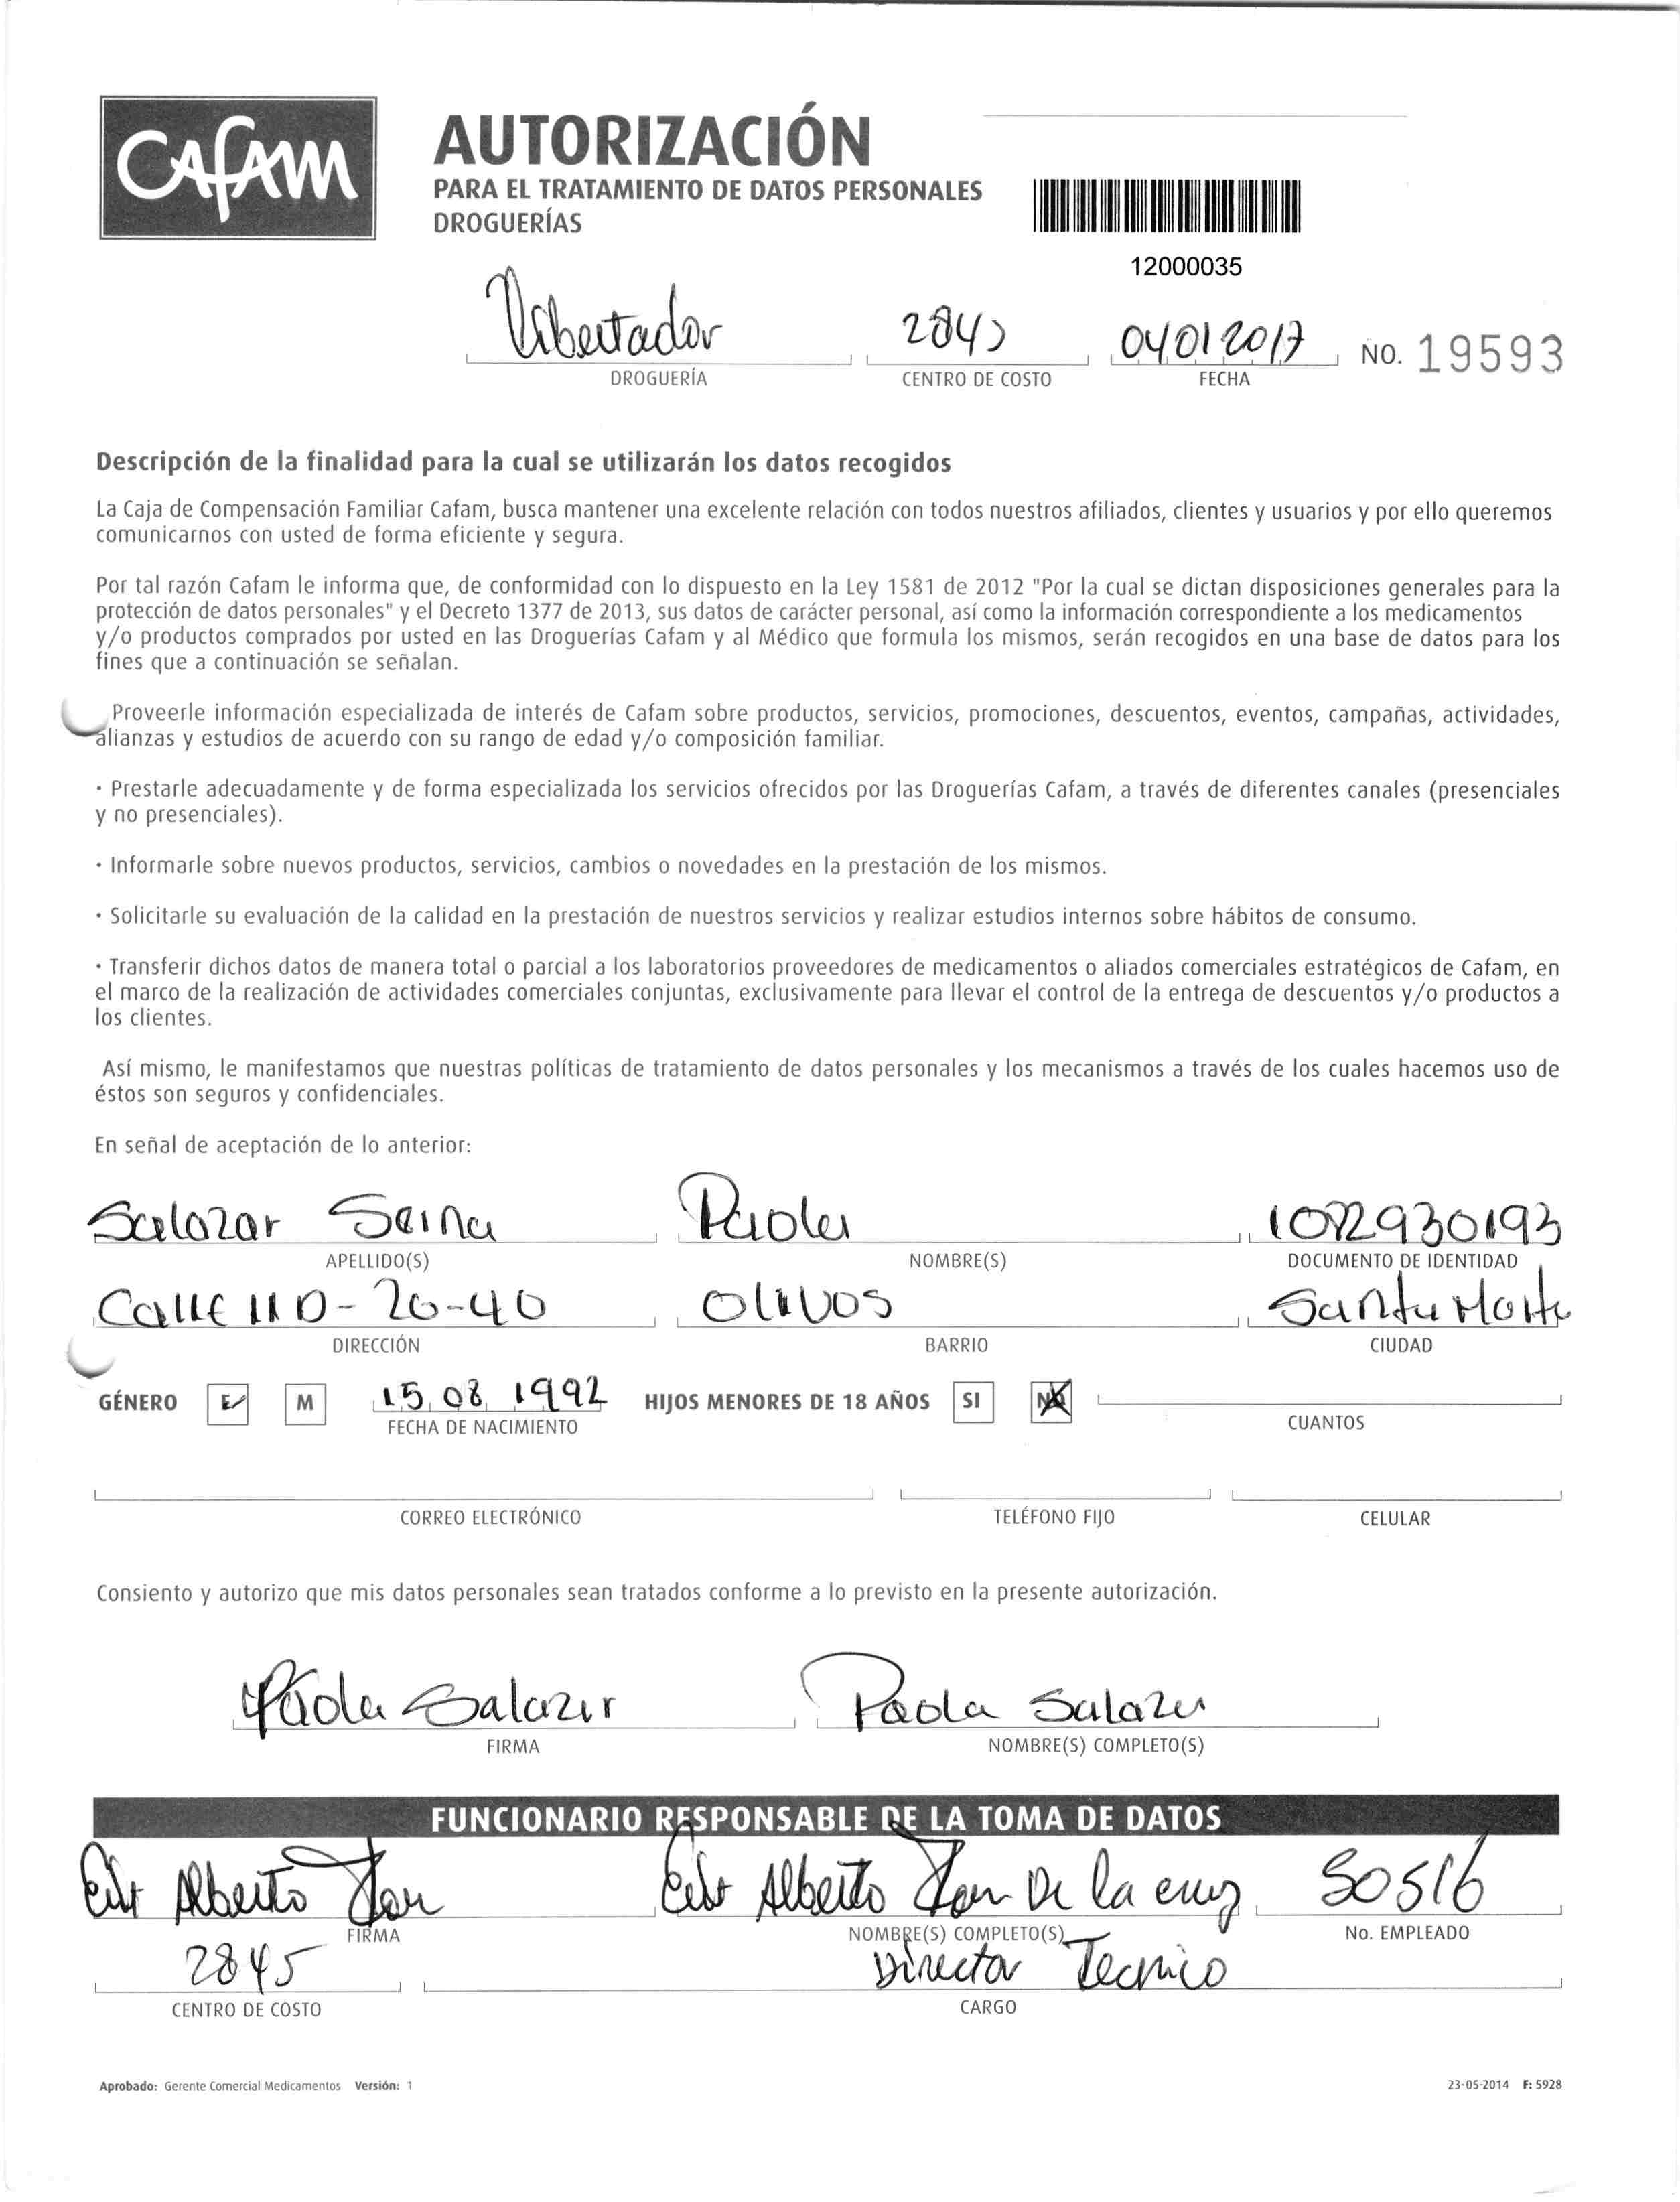 CAFAM
AUTORIZACIÓN
PARA EL TRATAMIENTO DE DATOS PERSONALES
DROGUERÍAS
12000035
Libertador 2845 04012017 NO. 19593
DROGUERÍA CENTRO DE COSTO FECHA
Descripción de la finalidad para la cual se utilizarán los datos recogidos
La Caja de Compensación Familiar Cafam, busca mantener una excelente relación con todos nuestros afiliados, clientes y usuarios y por ello queremos
comunicarnos con usted de forma eficiente y segura.
Por tal razón Cafam le informa que, de conformidad con lo dispuesto en la Ley 1581 de 2012 "Por la cual se dictan disposiciones generales para la
protección de datos personales" y el Decreto 1377 de 2013, sus datos de carácter personal, así como la información correspondiente a los medicamentos
y/o productos comprados por usted en las Droguerías Cafam y al Médico que formula los mismos, serán recogidos en una base de datos para los
fines que a continuación se señalan.
Proveerle información especializada de interés de Cafam sobre productos, servicios, promociones, descuentos, eventos, campañas, actividades,
alianzas y estudios de acuerdo con su rango de edad y/o composición familiar.
· Prestarle adecuadamente y de forma especializada los servicios ofrecidos por las Droguerías Cafam, a través de diferentes canales (presenciales
y no presenciales).
· Informarle sobre nuevos productos, servicios, cambios o novedades en la prestación de los mismos.
· Solicitarle su evaluación de la calidad en la prestación de nuestros servicios y realizar estudios internos sobre hábitos de consumo.
· Transferir dichos datos de manera total o parcial a los laboratorios proveedores de medicamentos o aliados comerciales estratégicos de Cafam, en
el marco de la realización de actividades comerciales conjuntas, exclusivamente para llevar el control de la entrega de descuentos y/o productos a
los clientes.
Así mismo, le manifestamos que nuestras políticas de tratamiento de datos personales y los mecanismos a través de los cuales hacemos uso de
éstos son seguros y confidenciales.
En señal de aceptación de lo anterior:
Salazar Paola
APELLIDO(S) NOMBRE(S) DOCUMENTO DE IDENTIDAD
Calle 11D-20-40 Olivos Santa Marta
DIRECCIÓN BARRIO CIUDAD
GÉNERO F M 15 08 1992 HIJOS MENORES DE 18 AÑOS SI NO
FECHA DE NACIMIENTO CUANTOS
CORREO ELECTRÓNICO TELÉFONO FIJO CELULAR
Consiento y autorizo que mis datos personales sean tratados conforme a lo previsto en la presente autorización.
Paola Salazar Paola Salazar
FIRMA NOMBRE(S) COMPLETO(S)
FUNCIONARIO RESPONSABLE DE LA TOMA DE DATOS
Alberto Alberto De la cruz 50516
FIRMA NOMBRE(S) COMPLETO(S) No. EMPLEADO
2845 Director Tecnico
CENTRO DE COSTO CARGO
Aprobado: Gerente Comercial Medicamentos Versión: 1 23-05-2014 F: 5928